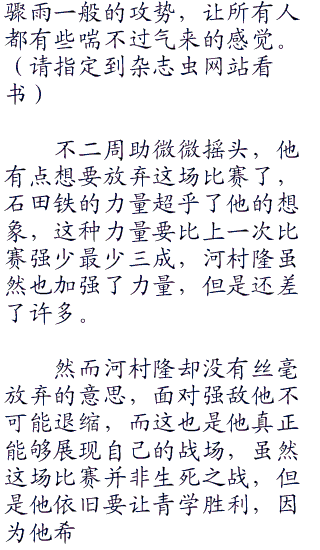 骤雨一般的攻势，让所有人
都有些喘不过气来的感觉。
（请指定到杂志虫网站看
书）
不二周助微微摇头，他
有点想要放弃这场比赛了，
石田铁的力量超乎了他的想
象，这种力量要比上一次比
赛强少最少三成，河村隆虽
然也加强了力量，但是还差
了许多。
然而河村隆却没有丝毫
放弃的意思，面对强敌他不
可能退缩，而这也是他真正
能够展现自己的战场，虽然
这场比赛并非生死之战，但
是他依旧要让青学胜利，因
为他希